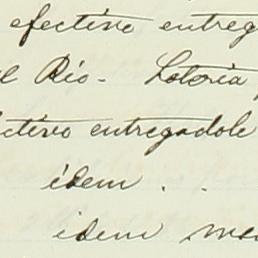 efectivo entreg
el Rio - Loteria
ctivo entregadole
idem . .
idem me